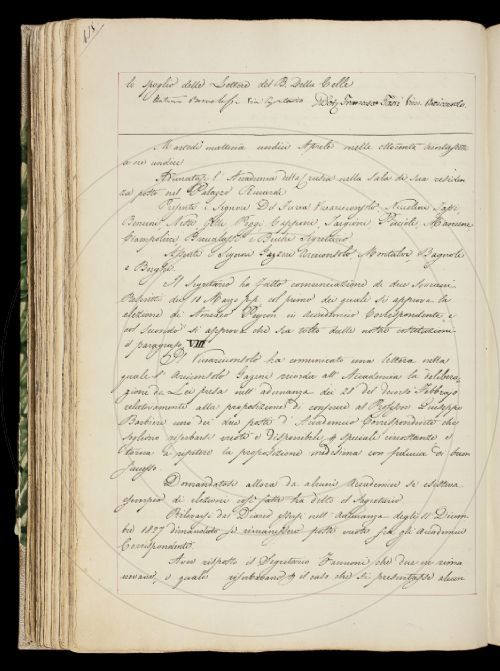 lo spoglio delle Lettere del B. Della Cella
Dott. Francesco Tassi Vice
Martedì mattina undici Aprile mille ottocento trentasette
a ore undici
Adunatasi l'Accademia della Crusca nella Sala di sua residen
za posta nel Palazzo Riccardi
Presenti i Signori Del Furia Vicearciconsolo, Niccolini,
Bencini, Nesti, Poggi, Capponi, Targioni, Piccioli, Mancini
Ciampolini, Becchi Segretario
Assenti i Signori Gazzeri Arciconsolo, Montalvi, Bagnoli
e Borghi.
Il Segretario ha fatto comunicazione di due Sovrani
Rescritti del 18 Marzo p.p. col primo dei quali si approva la
elezione di Amedeo Peyron in Accademico Corrispondente, e
col secondo si approva che sia tolto dalle nostre costituzioni
il paragrafo VIII
Il Vicearciconsolo ha comunicato una lettera nella
quale l'Arciconsolo Gazzeri ricorda all'Accademia la delibera
zione da Lei presa nell'adunanza dei 28 del decorso Febbrajo
relativamente alla proposizione di conferire al Professor Giuseppe
Barbieri uno dei due posti d'Accademico Corrispondente che
sogliono riserbarsi vuoti e disponibili speciali circostanze e
torna a ripetere la proposizione medesima con fiducia di buon
successo.
Domandatosi allora da alcuni Accademici se esisteva
esempio di elezioni così fatte ha detto il Segretario
Rilevarsi dal Diario che nell'Adunanza degli 11 Dicem
bre 1827 dimandato se rimanessero posti vuoti fra gli Accademici
Corrispondenti.
Aver risposto il Segretario Zannoni che due ne rima
nevano, i quali riserbavano il caso che si presentasse alcun